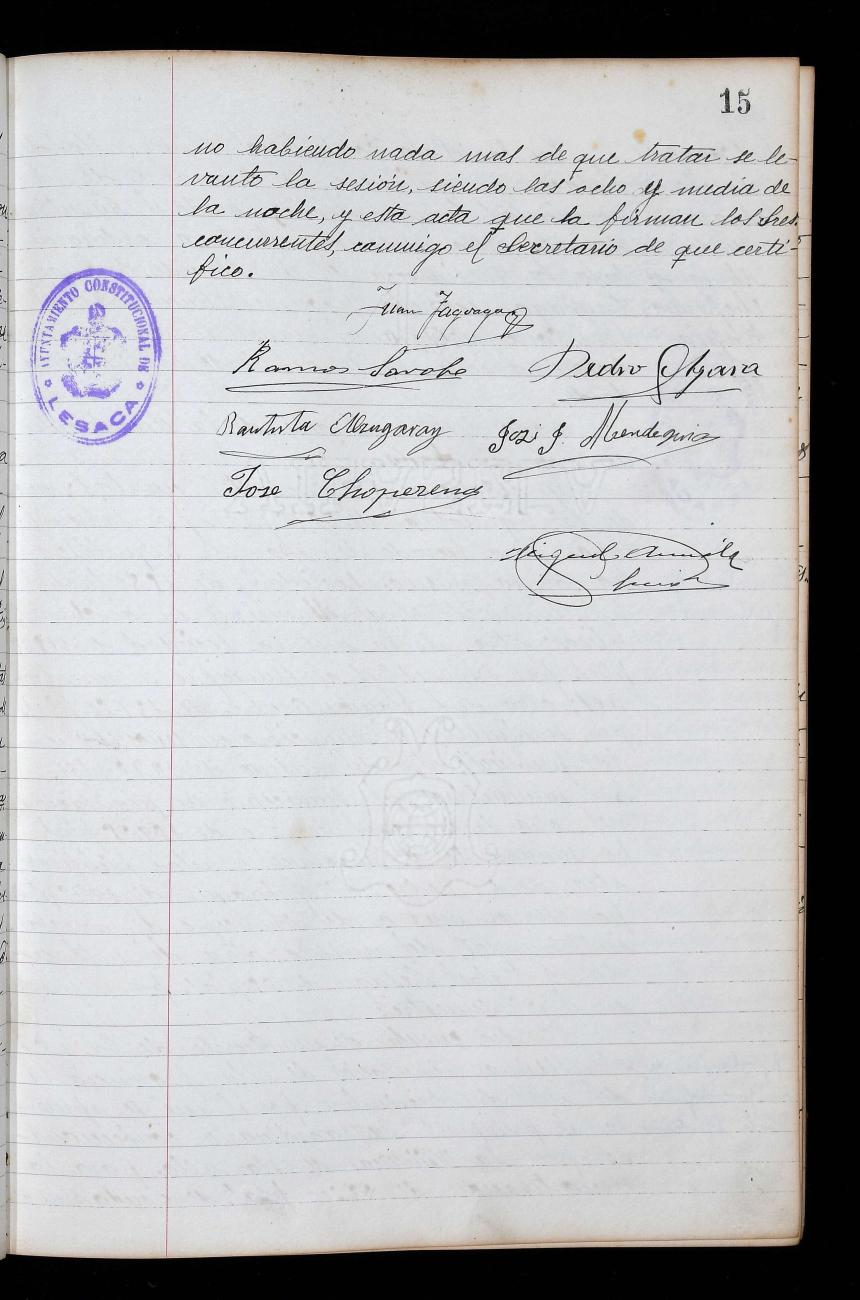 15
no habiendo nada mas de que tratar se le-
vantó la sesión, siendo las ocho y media de
la noche, y esta acta que la firman los Sres.
concurrentes, conmigo el Secretario de que certi-
fico.
AYUNTAMIENTO CONSTITUCIONAL DE
LESACA
Juan
Ramos Pedro
Bautista Jozé J.
Jose Choperena
Miguel